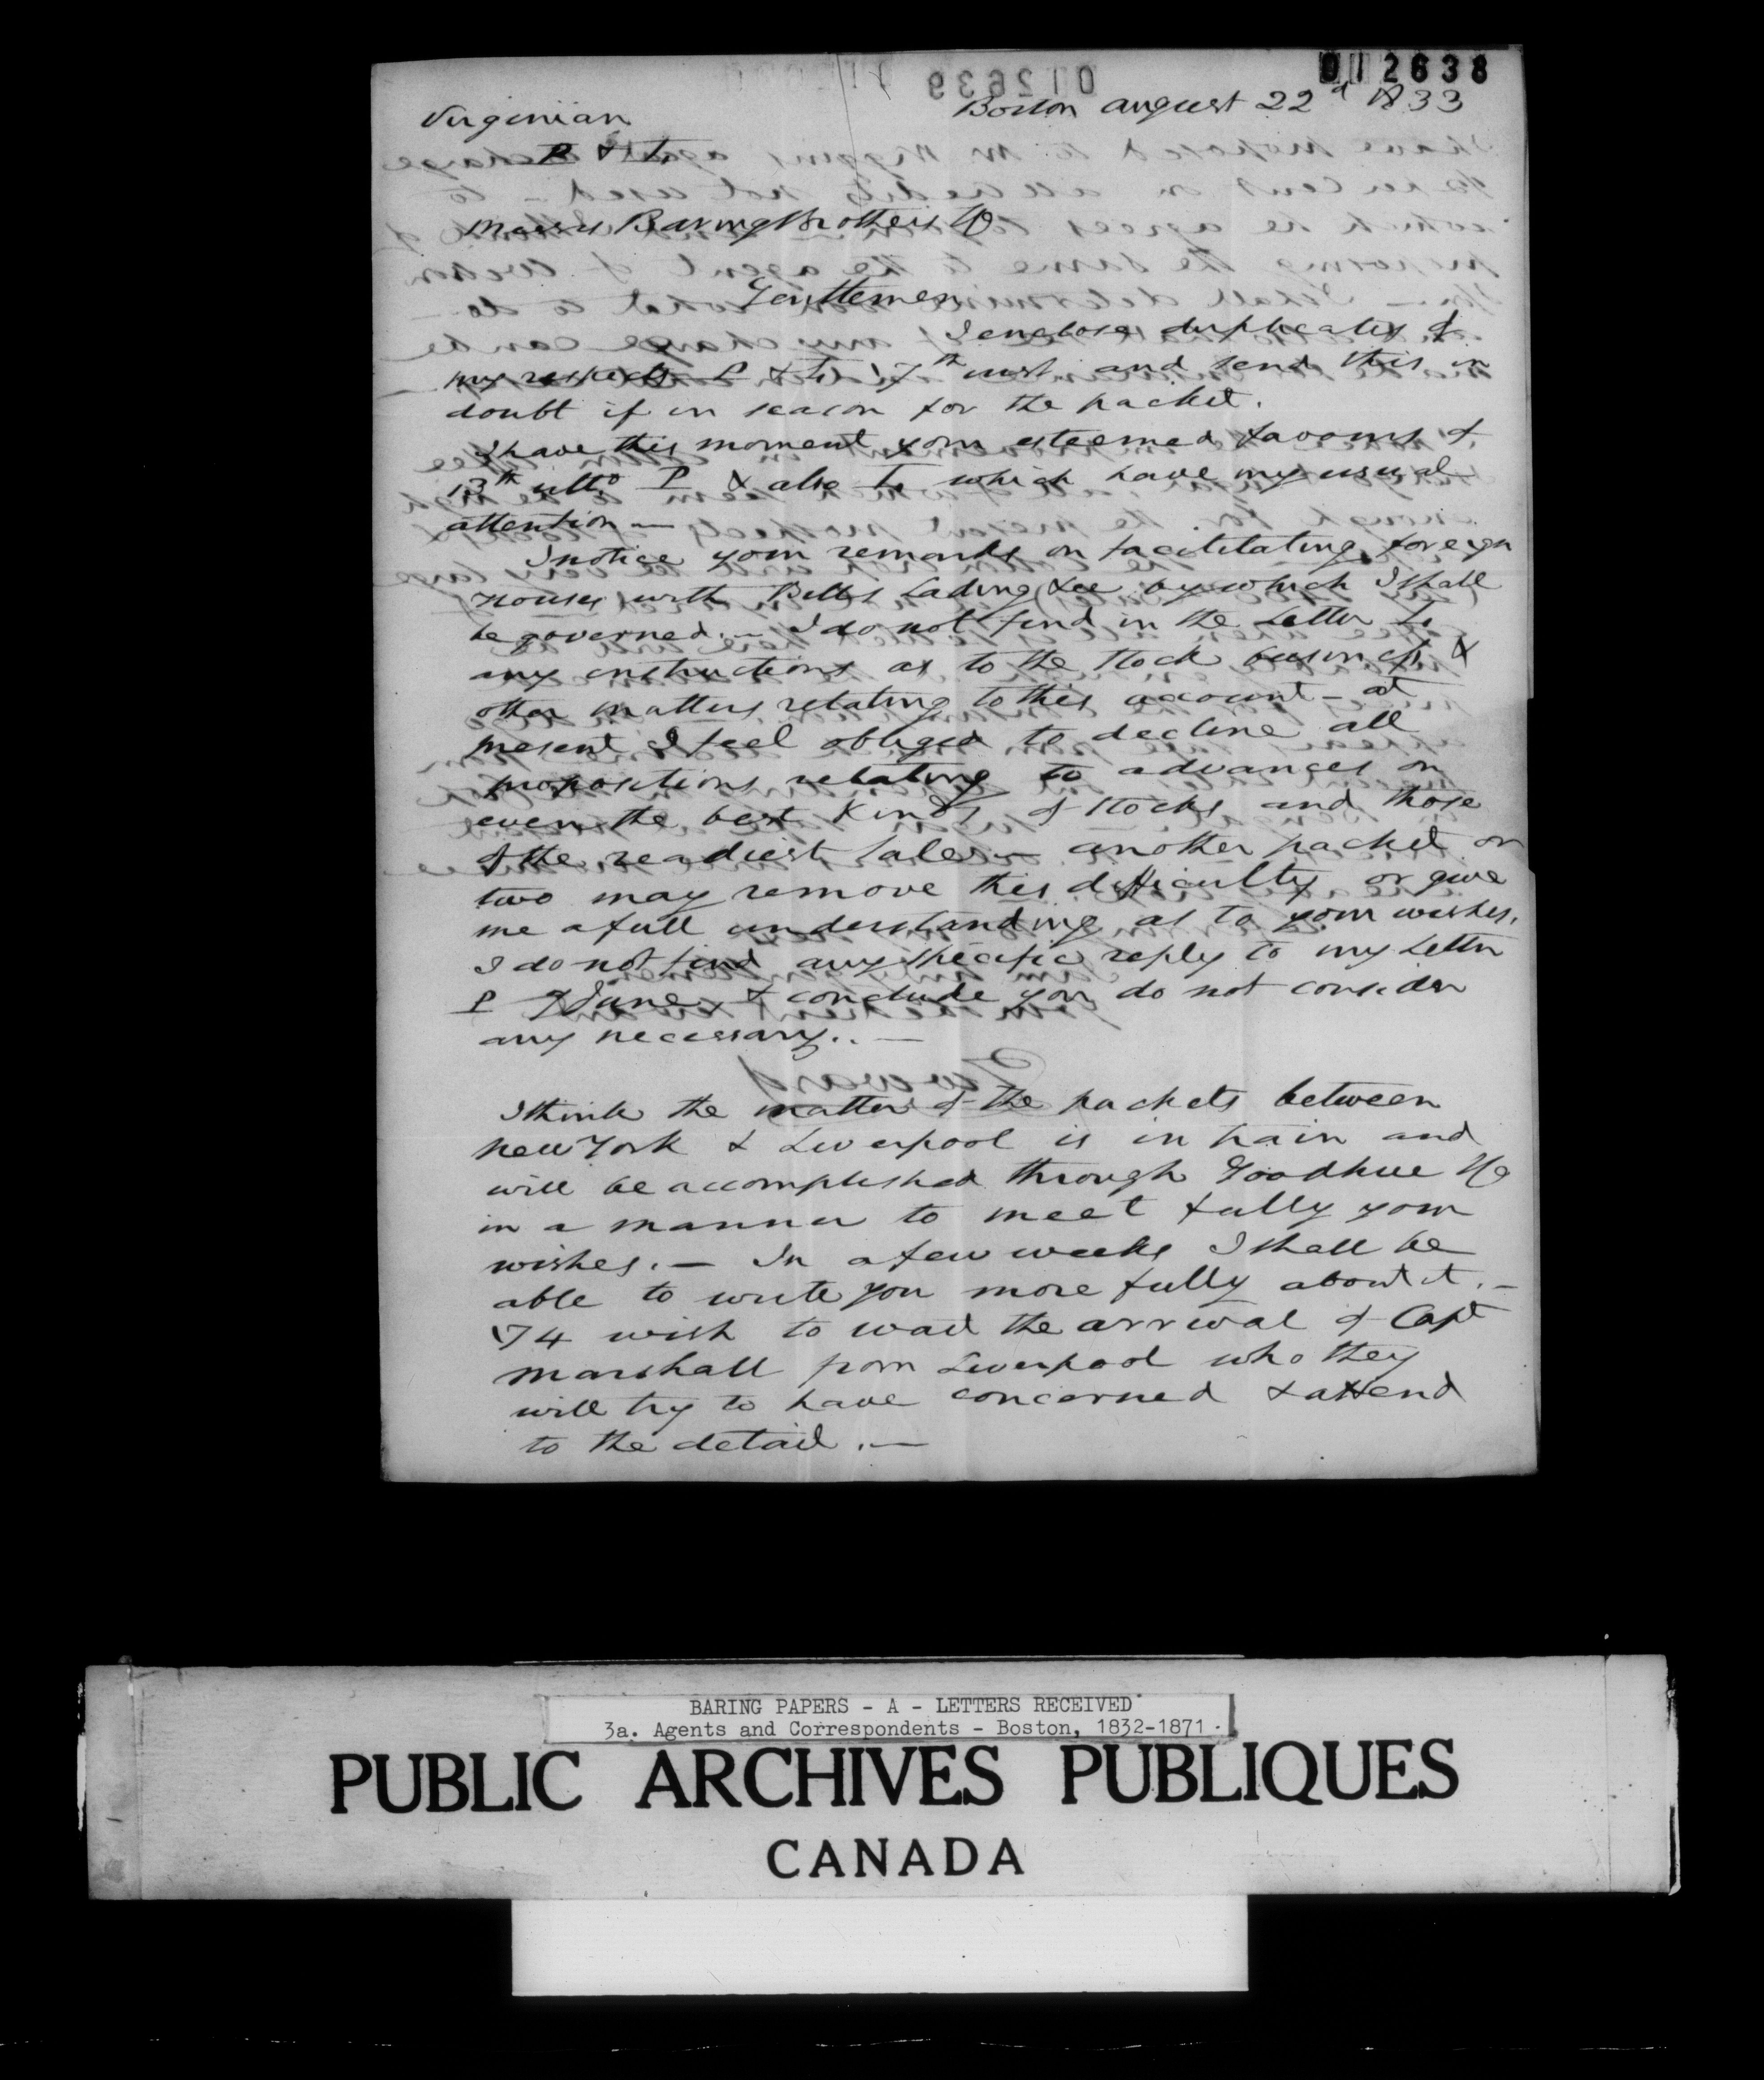 012638
012639
Boston august 22d 1833
Virginian
P & T.
Messrs Baring Brothers & Co
Gentlemen
I enclose duplicates of
my respects P & T. 17th inst and send this in
doubt if in season for the packet.
I have this moment your esteemed favours of
13th ulto P & also T. which have my usual
attention —
I notice your remarks on facilitating foreign
houses with Bills Lading &ce by which I shall
be governed. — I do not find in the Letter T.
any instructions as to the Stock business &
other matters relating to this account — at
present I feel obliged to decline all
propositions relating to advances on
even the best Kinds of Stocks and those
of the readiest sales — another packet or
two may remove this difficulty or give
me a full understanding as to your wishes.
I do not find any specific reply to my Letter
P of June, & conclude you do not consider
any necessary.. —
I think the matter of the packets between
New York & Liverpool is in train and
will be accomplished through Goodhue & Co
in a manner to meet fully your
wishes. — In a few weeks I shall be
able to write you more fully about it. —
74 wish to wait the arrival of Capt
Marshall from Liverpool who they
will try to have concerned & attend
to the detail. —
BARING PAPERS - A - LETTERS RECEIVED
3a. Agents and Correspondents - Boston, 1832-1871.
PUBLIC ARCHIVES PUBLIQUES
CANADA